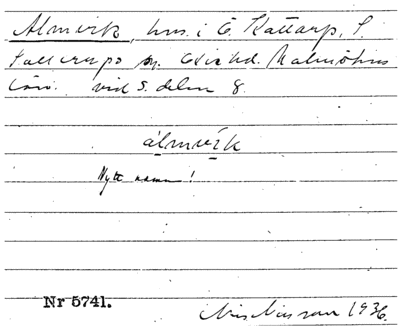 Almvik, hus i Ö. Kattarp, S.
Sallerups sn. Oxie hd. Malmöhus
län. vid S. delen 8.
álmvìk
Nytt namn!
Nr 5741.
Nils Nilsson 1936.